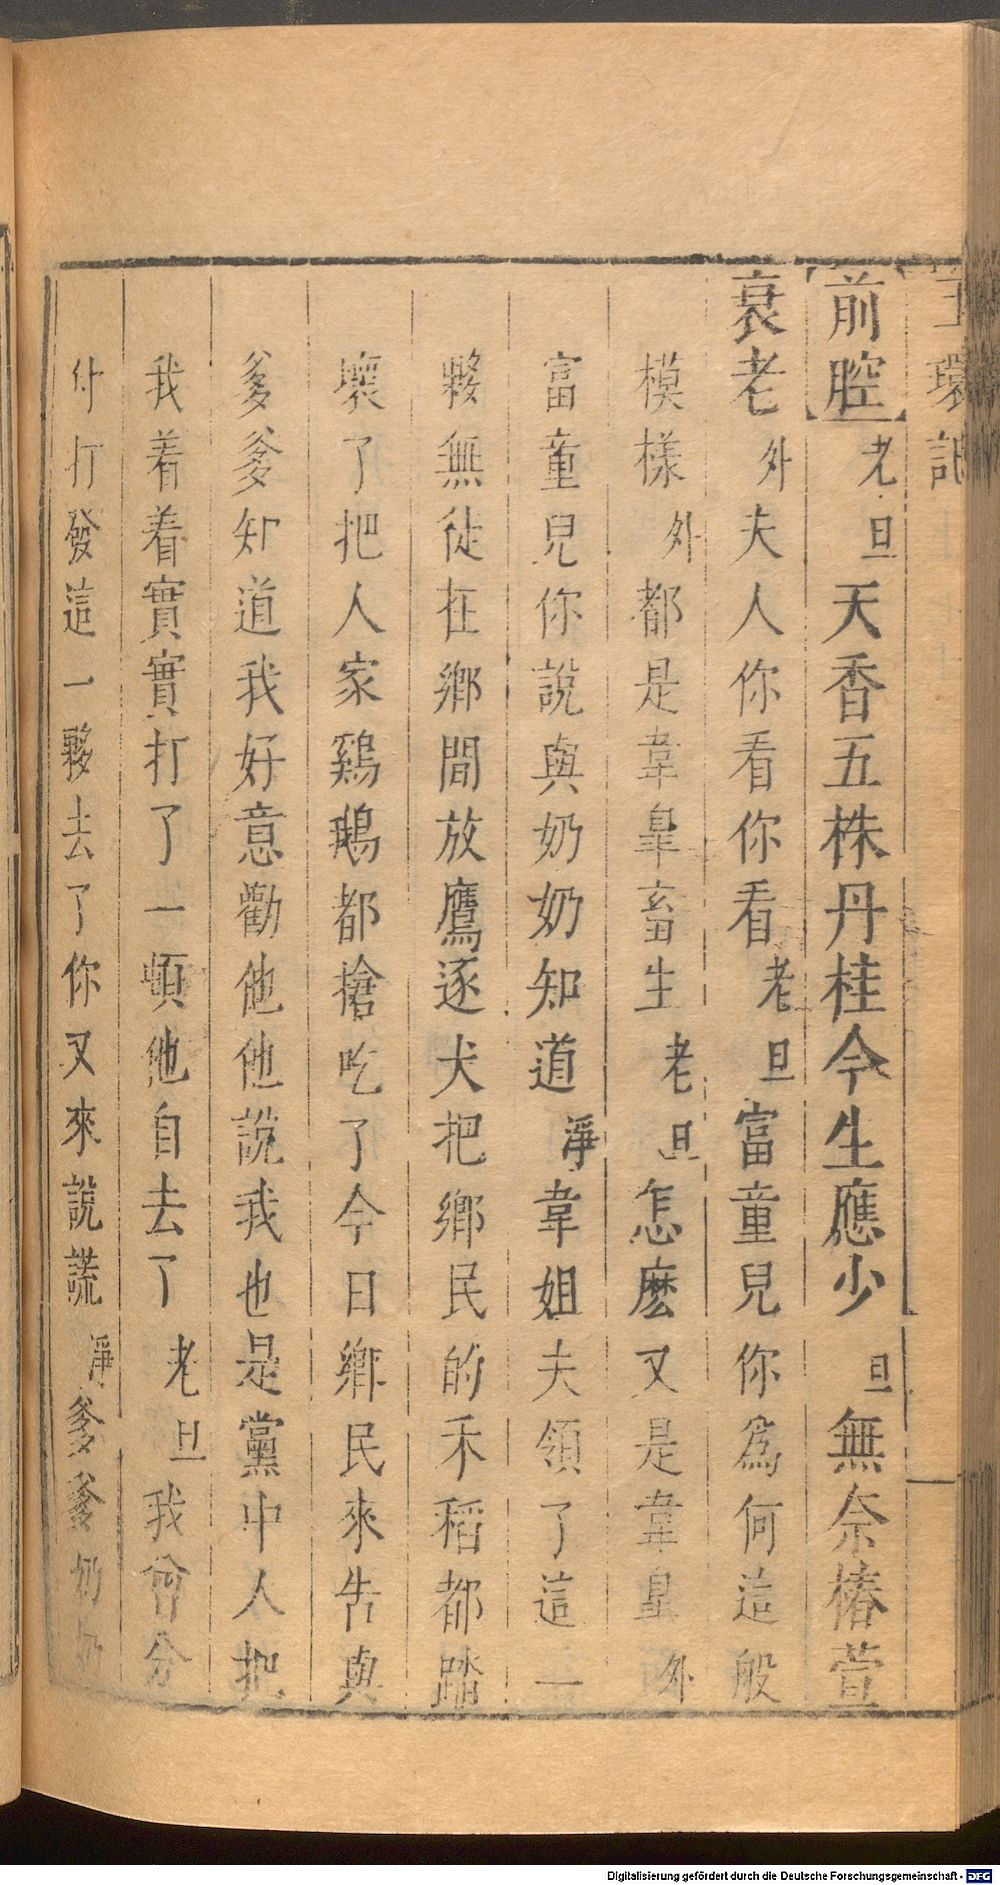 玉環記
前腔 老旦 天香五株丹桂今生應少 旦 無奈椿萱
衰老 外 夫人你看你看 老旦 富童兒你爲何這般
模樣 外 都是韋臯畜生 老旦 怎麽又是韋臯 外
富童兒你說與奶奶知道 淨 韋姐夫領了這一
夥無徒在鄉間放鷹逐犬把鄉民的禾稻都踏
壞了把人家鷄鵝都搶吃了今日鄉民來告與
爹爹知道我好意勸他他說我也是黨中人把
我着着實實打了一頓他自去了 老旦 我曾分
付打發這一夥去了你又來說謊 淨 爹爹奶奶
Digitalisierung gefördert durch die Deutsche Forschungsgemeinschaft - DFG